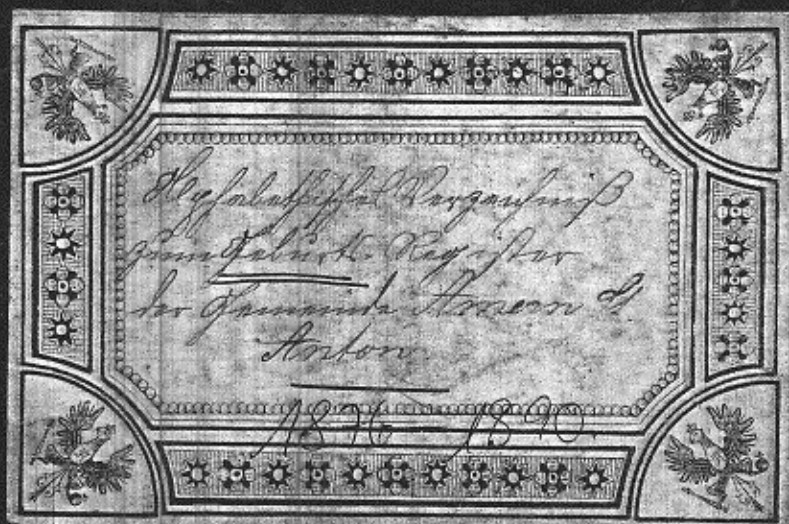 Alphabethisches Verzeichniß
zum Geburts-Register
der Gemeinde Amern St.
Anton.
1876 — 1890.